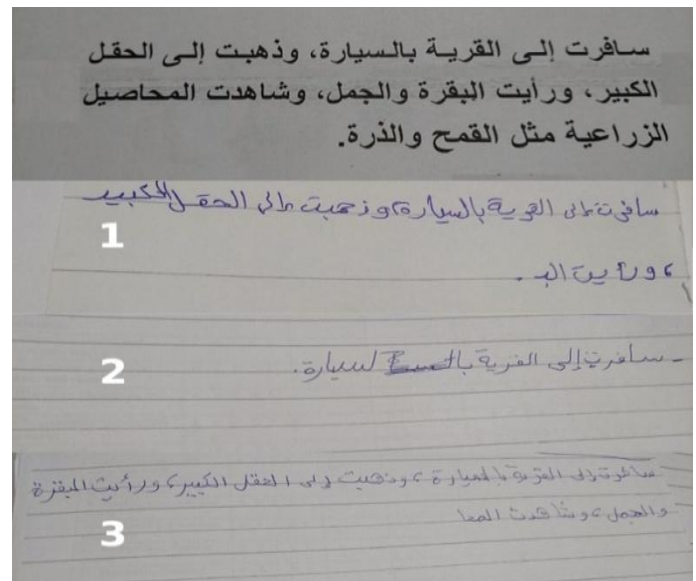 سافرت إلى القرية بالسيارة، وذهبت إلى الحقل
الكبير، ورأيت البقرة والجمل، وشاهدت المحاصيل
الزراعية مثل القمح والذرة.
سافرت إلى القرية بالسيارة، وذهبت إلى الحقل الكبير
1
، ورأيت الب .
2
- سافرت إلى القرية با لسيارة.
سافرت إلى القرية بالسيارة، وذهبت إلى الحقل الكبير، ورأيت البقرة
والجمل، وشاهدت المحا
3